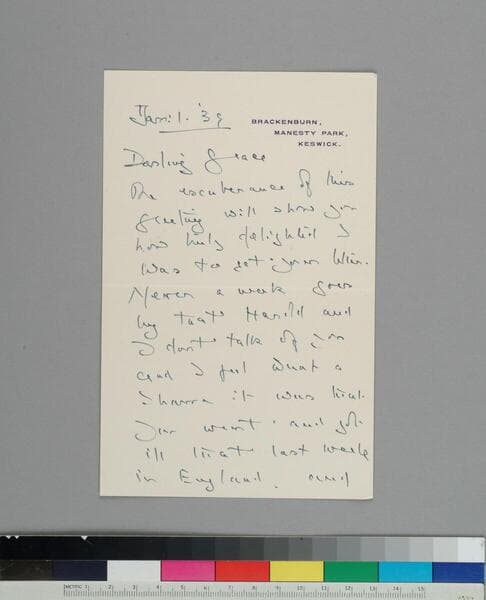 Jan. 1. '39
BRACKENBURN,
MANESTY PARK,
KESWICK.
Darling Grace
The exuberance of this
greeting will show you
how truly delighted I
was to get your letter.
Never a week goes
by that Harold and
I don't talk of you
and I feel what a
shame it was that
you went and got
ill that last week
in England. and
METRIC 1 2 3 4 5 6 7 8 9 10 11 12 13 14 15